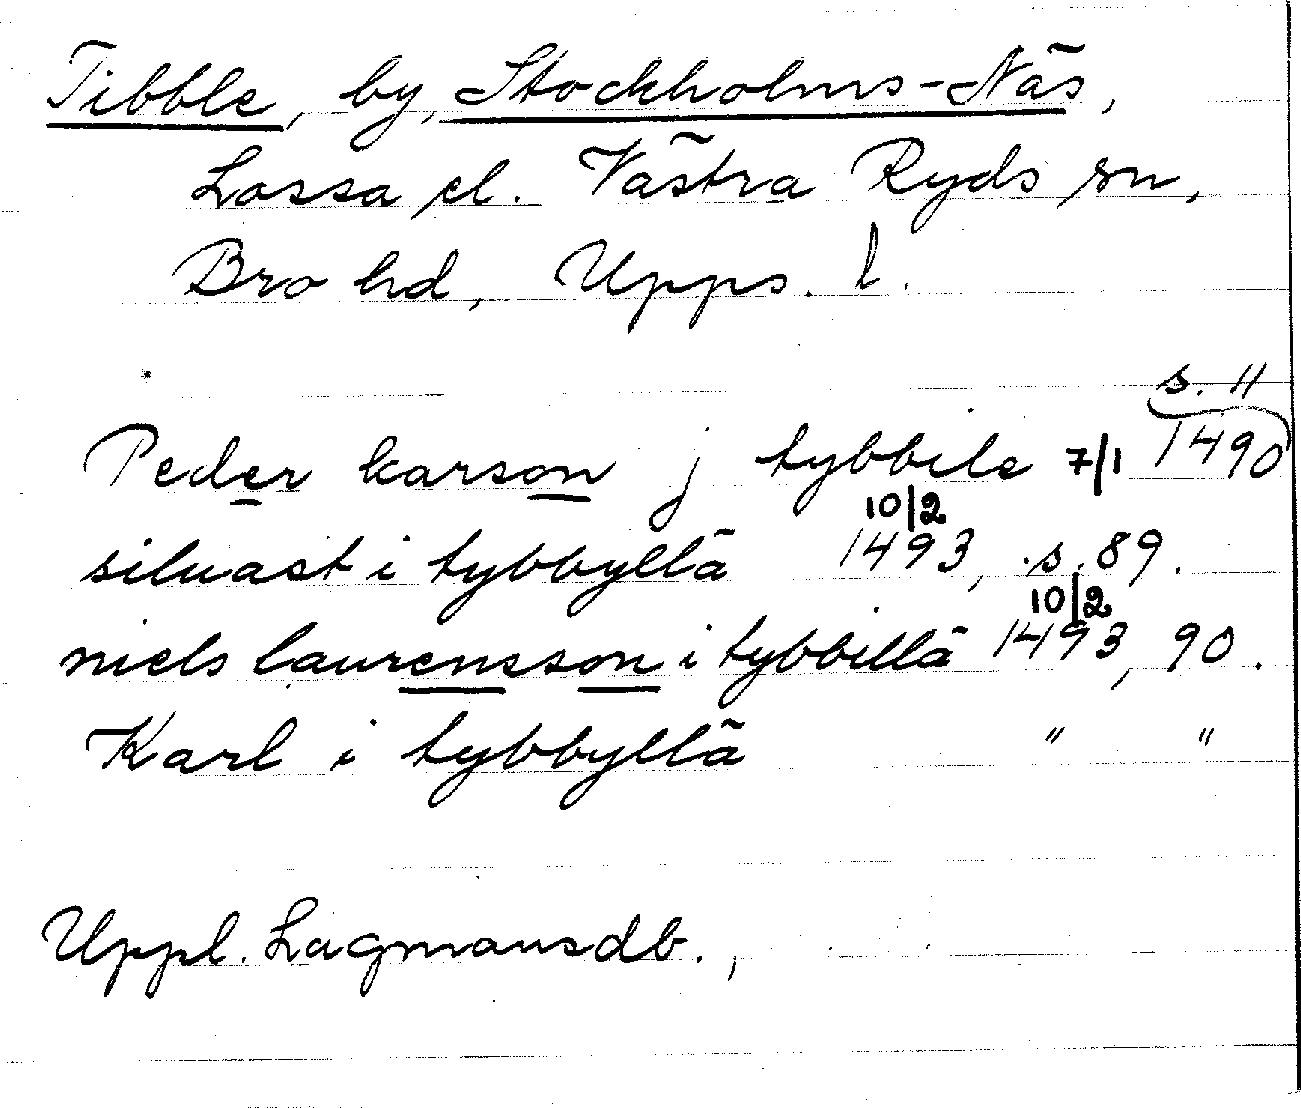 Tibble, by, Stockholms-Näs,
Lossa el. Västra Ryds sn,
Bro hd, Upps. l.
s. 11
Peder karson j tybbile 7/1 1490
10/2
siluast i tybbyllä 1493, s. 89.
10/2
niels laurensson i tybbillä 1493, 90.
Karl i tybbyllä " "
Uppl. Lagmansdb.,